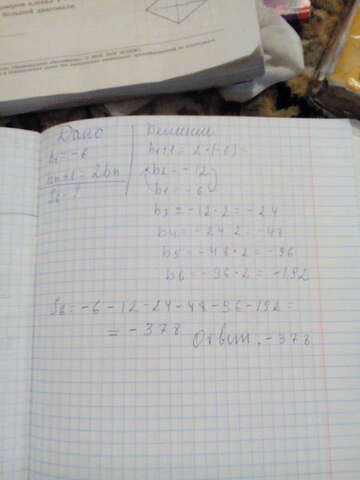 большой диагонали.
Дано
b₁ = -6
bn+1 = 2bn
S6 - ?
Решение
b1+1 = 2·(-6) =
b2 = -12
b1 = -6
b3 = -12·2 = -24
b4 = -24·2 = -48
b5 = -48·2 = -96
b6 = -96·2 = -192
S6 = -6-12-24-48-96-192 =
= -378 Ответ: -378